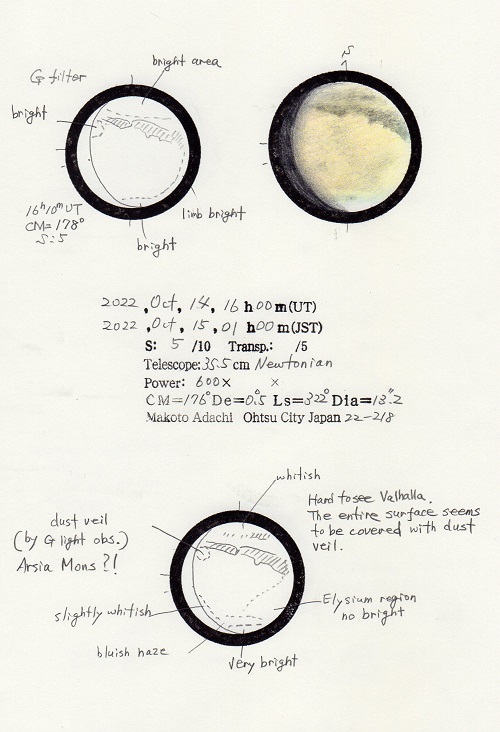 S
G filter
bright area
bright
16h10m UT
CM=178°
S:5
limb bright
bright
2022, Oct, 14, 16 h00m(UT)
2022, Oct, 15, 01 h00m(JST)
S: 5 /10 Transp.: /5
Telescope: 35.5 cm Newtonian
Power: 600× ×
CM=176° De=0.5° Ls=322° Dia=13.2"
Makoto Adachi Ohtsu City Japan 22-218
whitish
Hard to see Valhalla.
The entire surface seems
to be covered with dust
veil.
dust veil
(by G light obs.)
Arsia Mons?!
slightly whitish
Elysium region
no bright
bluish haze
very bright